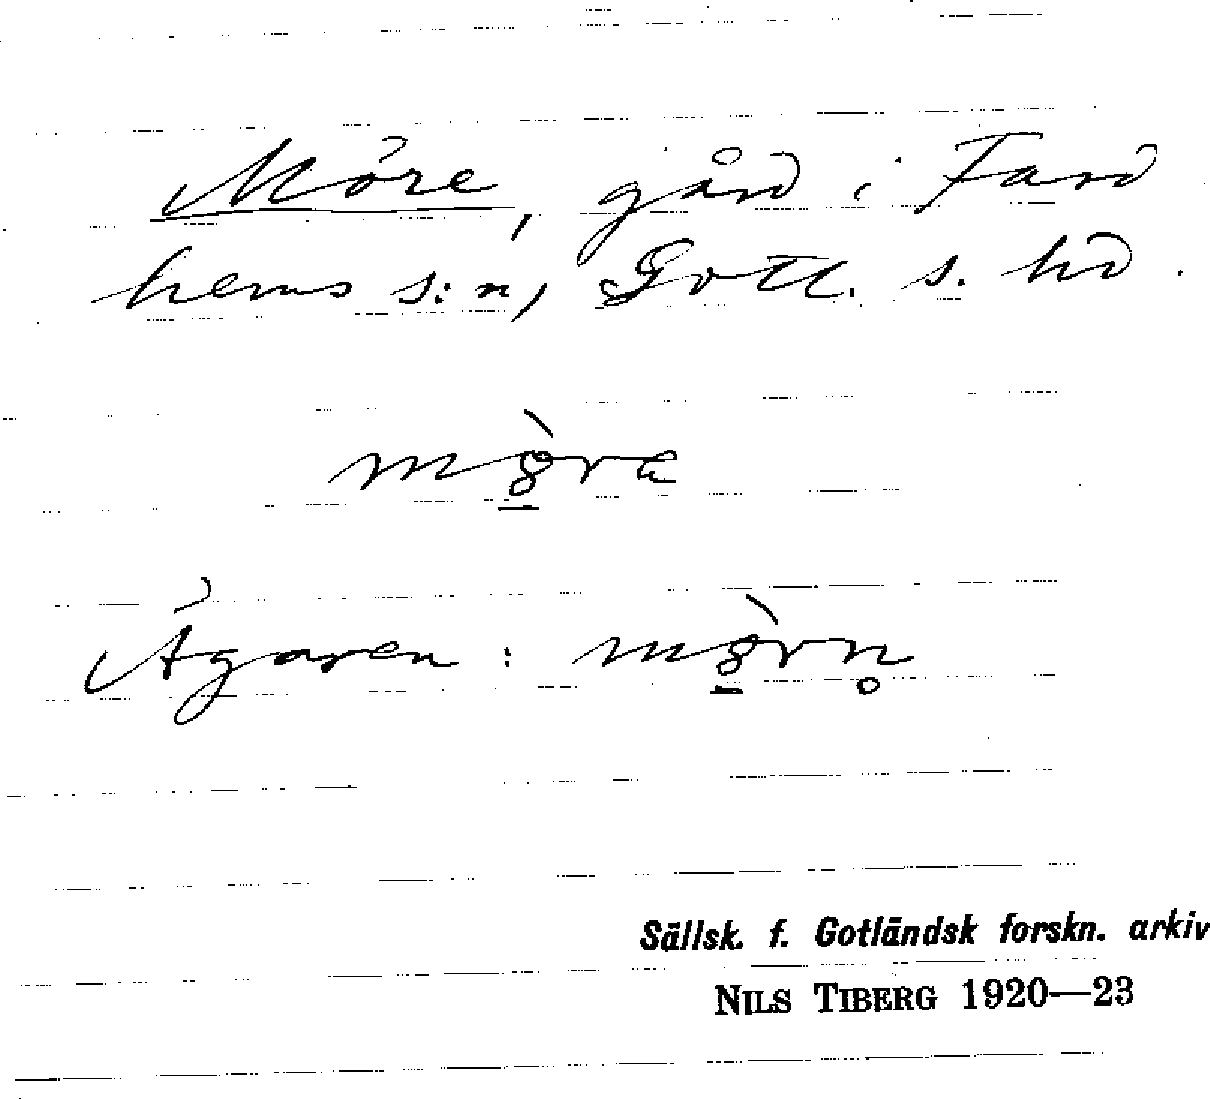 Möre, gård i Fard
hems s:n, Gotl. s. hd.
Ägaren:
Sällsk. f. Gotländsk forskn. arkiv
NILS TIBERG 1920—23